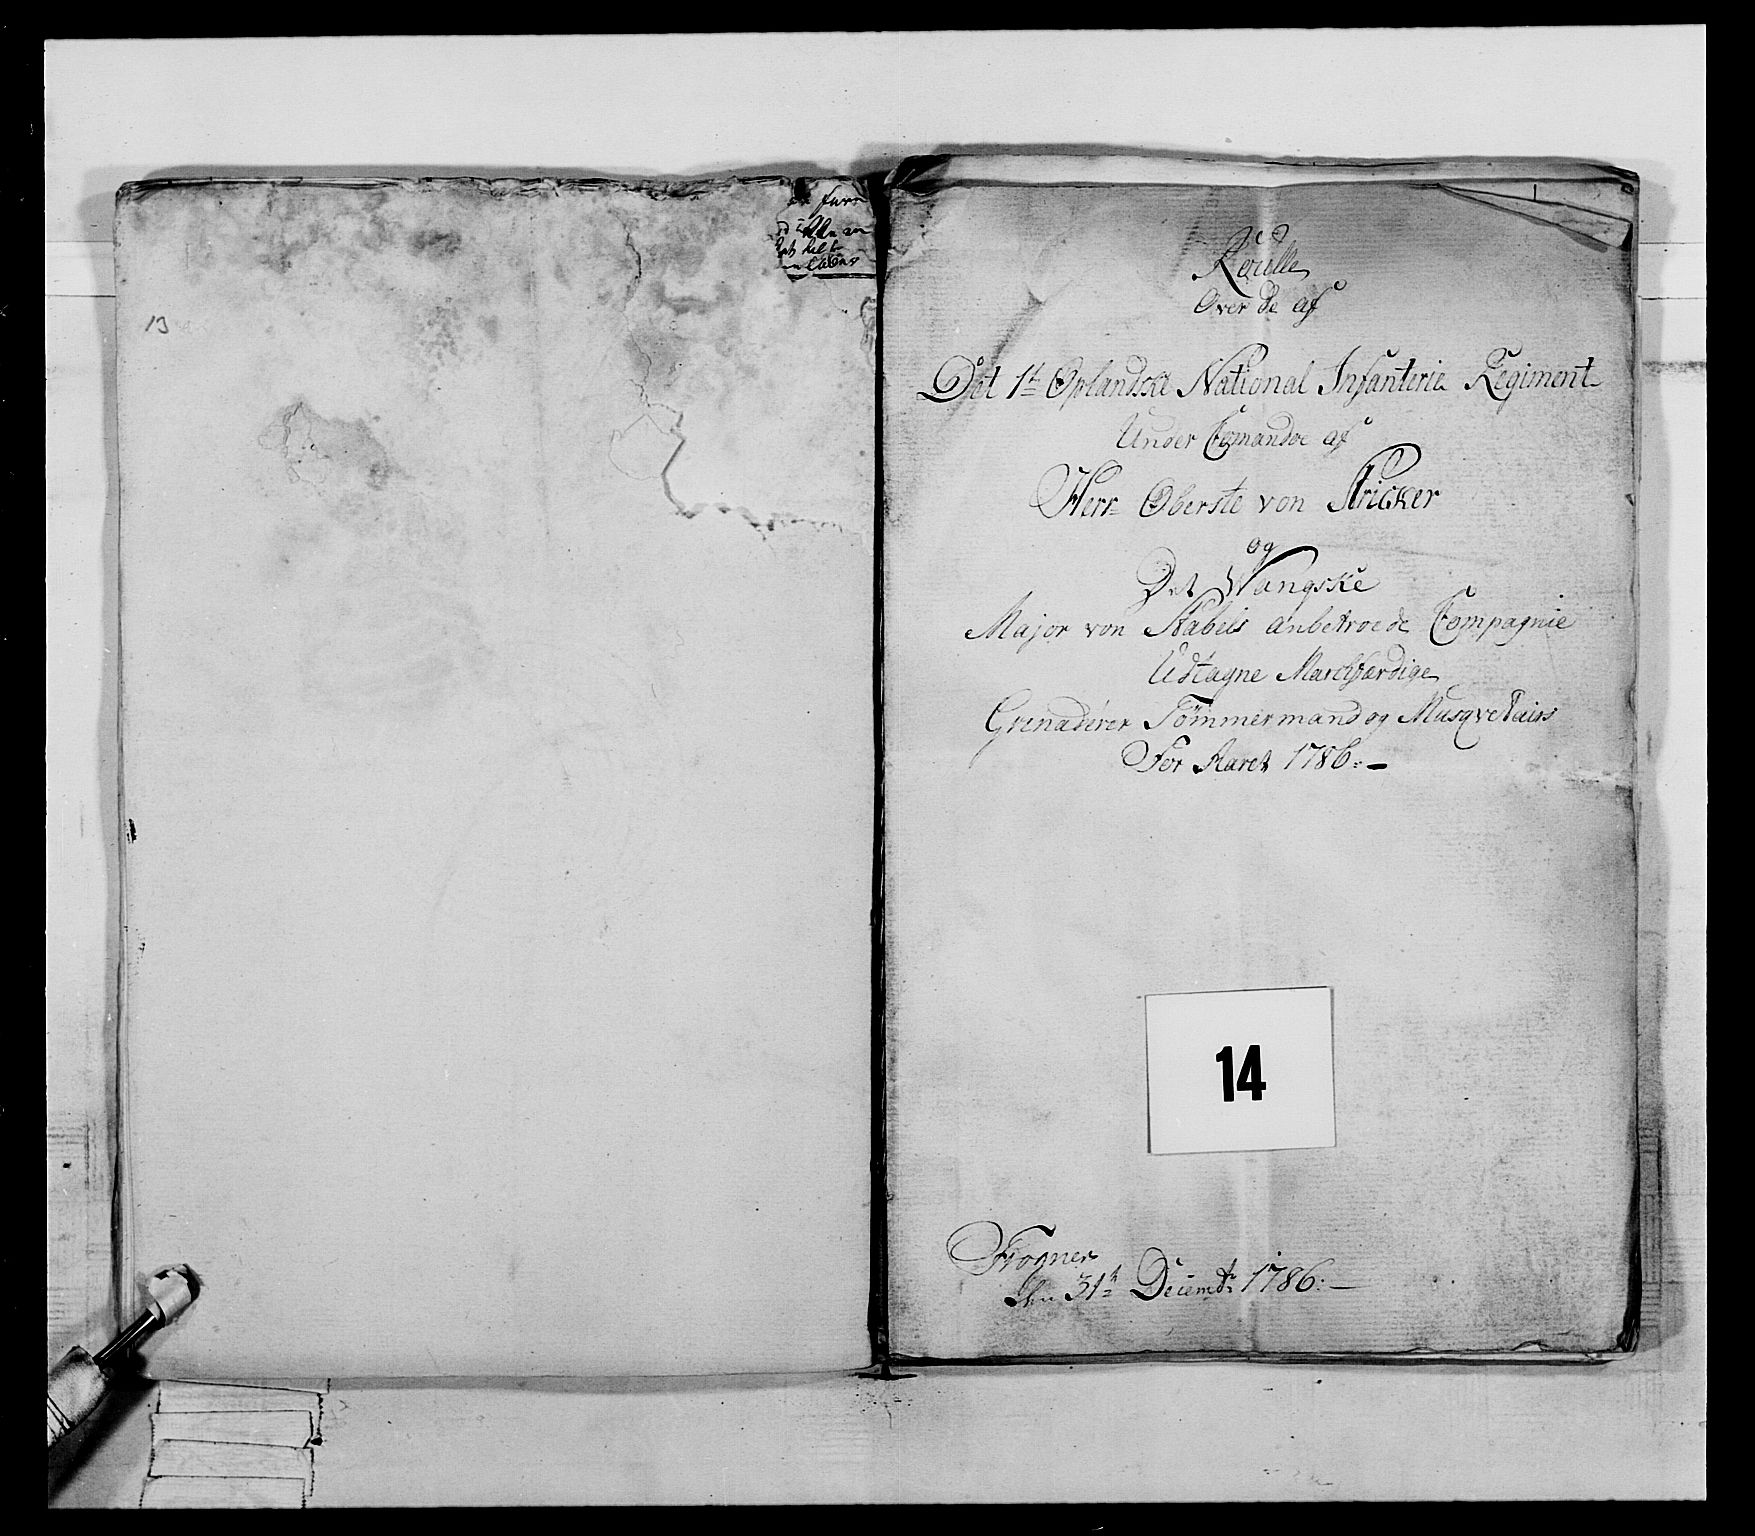 13
Roulle
Over de af
Det 1te Oplandske National Infanterie Regiment
Under Comandoe af
Herr Oberste von Stricker
og
Det Wangske
Major von Stabels anbetroede Compagnie
Udtagne Marchfærdige
Grenaderer Tømmermand og Musqvetairs
For Aaret 1786:-
14
Frogner
den 31te Decembr 1786:-